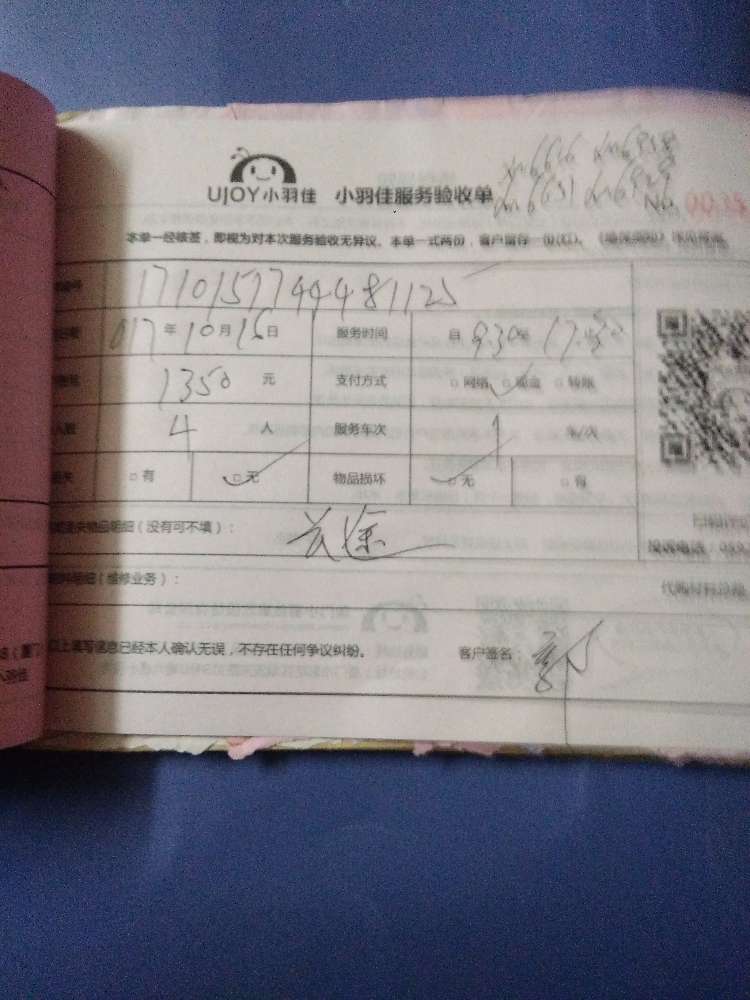 UJOY小羽佳 小羽佳服务验收单
xm6616 xm6938
xm6631 xm6928
No 0035
本单一经核签，即视为对本次服务验收无异议。本单一式两份，客户留存一份(红)。
号 1710151744481125
017年10月16日 服务时间 自9.30至17.30
1350元 支付方式 □网络 □现金 □转账
4人 服务车次 1 车/次
□有 □无 物品损坏 □无 □有
物品明细（没有可不填）：
明细（维修业务）：
投诉电话：
以上填写信息已经本人确认无误，不存在任何争议纠纷。 客户签名：郭
小羽佳